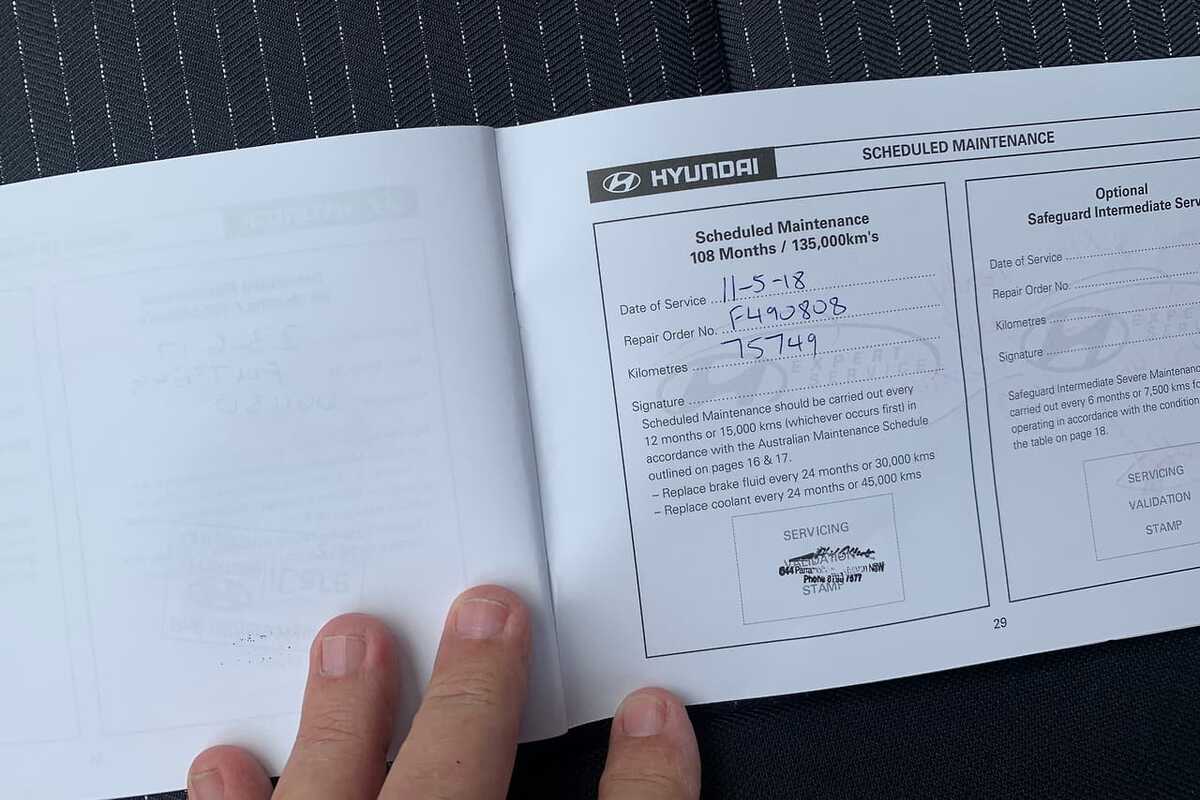 HYUNDAI
SCHEDULED MAINTENANCE
Scheduled Maintenance
108 Months / 135,000km's
Date of Service 11-5-18
Repair Order No. F490808
Kilometres 75749
Signature
EXPERT
SERVICE
Scheduled Maintenance should be carried out every
12 months or 15,000 kms (whichever occurs first) in
accordance with the Australian Maintenance Schedule
outlined on pages 16 & 17.
– Replace brake fluid every 24 months or 30,000 kms
– Replace coolant every 24 months or 45,000 kms
SERVICING
VALIDATION
644 NSW
Phone
STAMP
Optional
Safeguard Intermediate Serv
Date of Service
Repair Order No.
Kilometres
Signature
EXPERT
SERVICE
Safeguard Intermediate Severe Maintenance
carried out every 6 months or 7,500 kms fo
operating in accordance with the condition
the table on page 18.
SERVICING
VALIDATION
STAMP
29